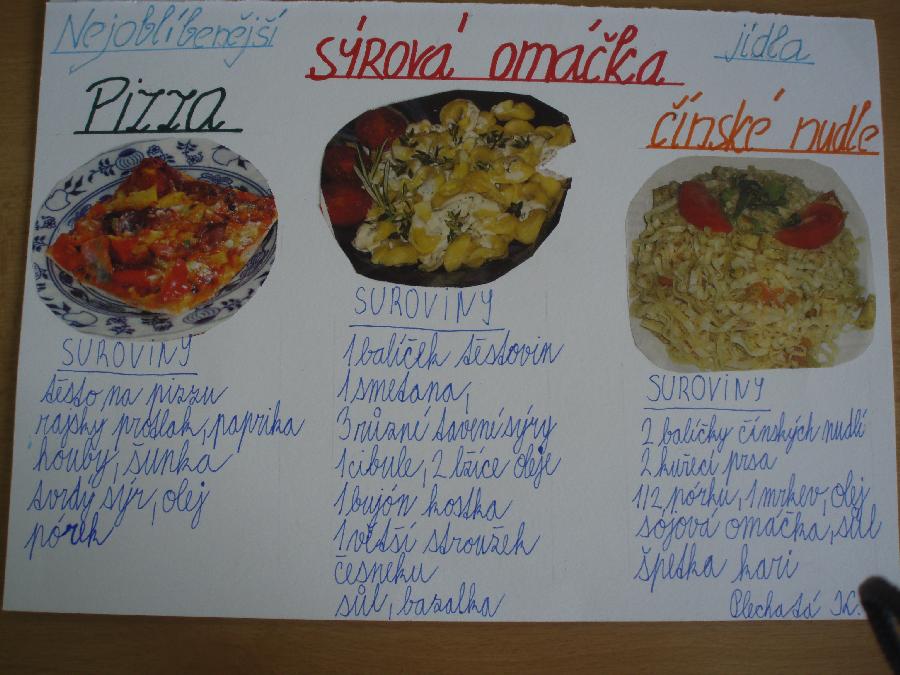 Nejoblíbenější
jídla
Pizza
SUROVINY
těsto na pizzu
rajský protlak, paprika
houby, šunka
tvrdý sýr, olej
pórek
SÝROVÁ omáčka
SUROVINY
1 balíček těstovin
1 smetana,
3 různé tavené sýry
1 cibule, 2 lžíce oleje
1 bujón kostka
1 větší stroužek
česneku
sůl, bazalka
čínské nudle
SUROVINY
2 balíčky čínských nudlí
2 kuřecí prsa
1/2 pórku, 1 mrkev, olej
sójová omáčka, sůl
špetka kari
Plechatá